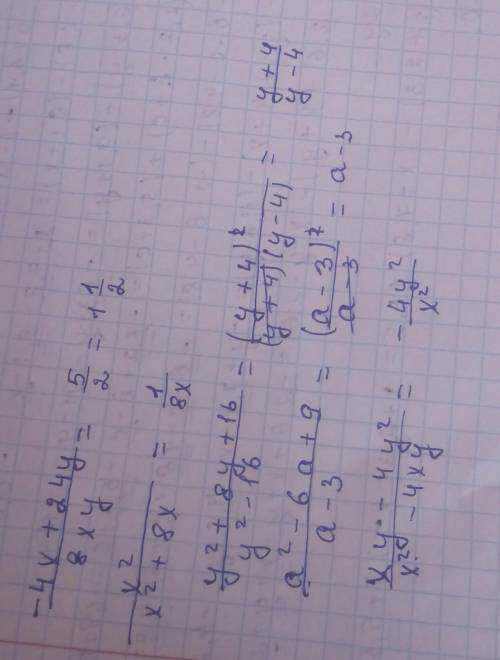 (-4x + 24y)/(8xy) = 5/2 = 1 1/2
x²/(x² + 8x) = 1/(8x)
(y² + 8y + 16)/(y² - 16) = (y + 4)²/((y + 4)(y - 4)) = (y + 4)/(y - 4)
(a² - 6a + 9)/(a - 3) = (a - 3)²/(a - 3) = a - 3
(xy - 4y²)/(x² - 4xy) = - 4y²/x²